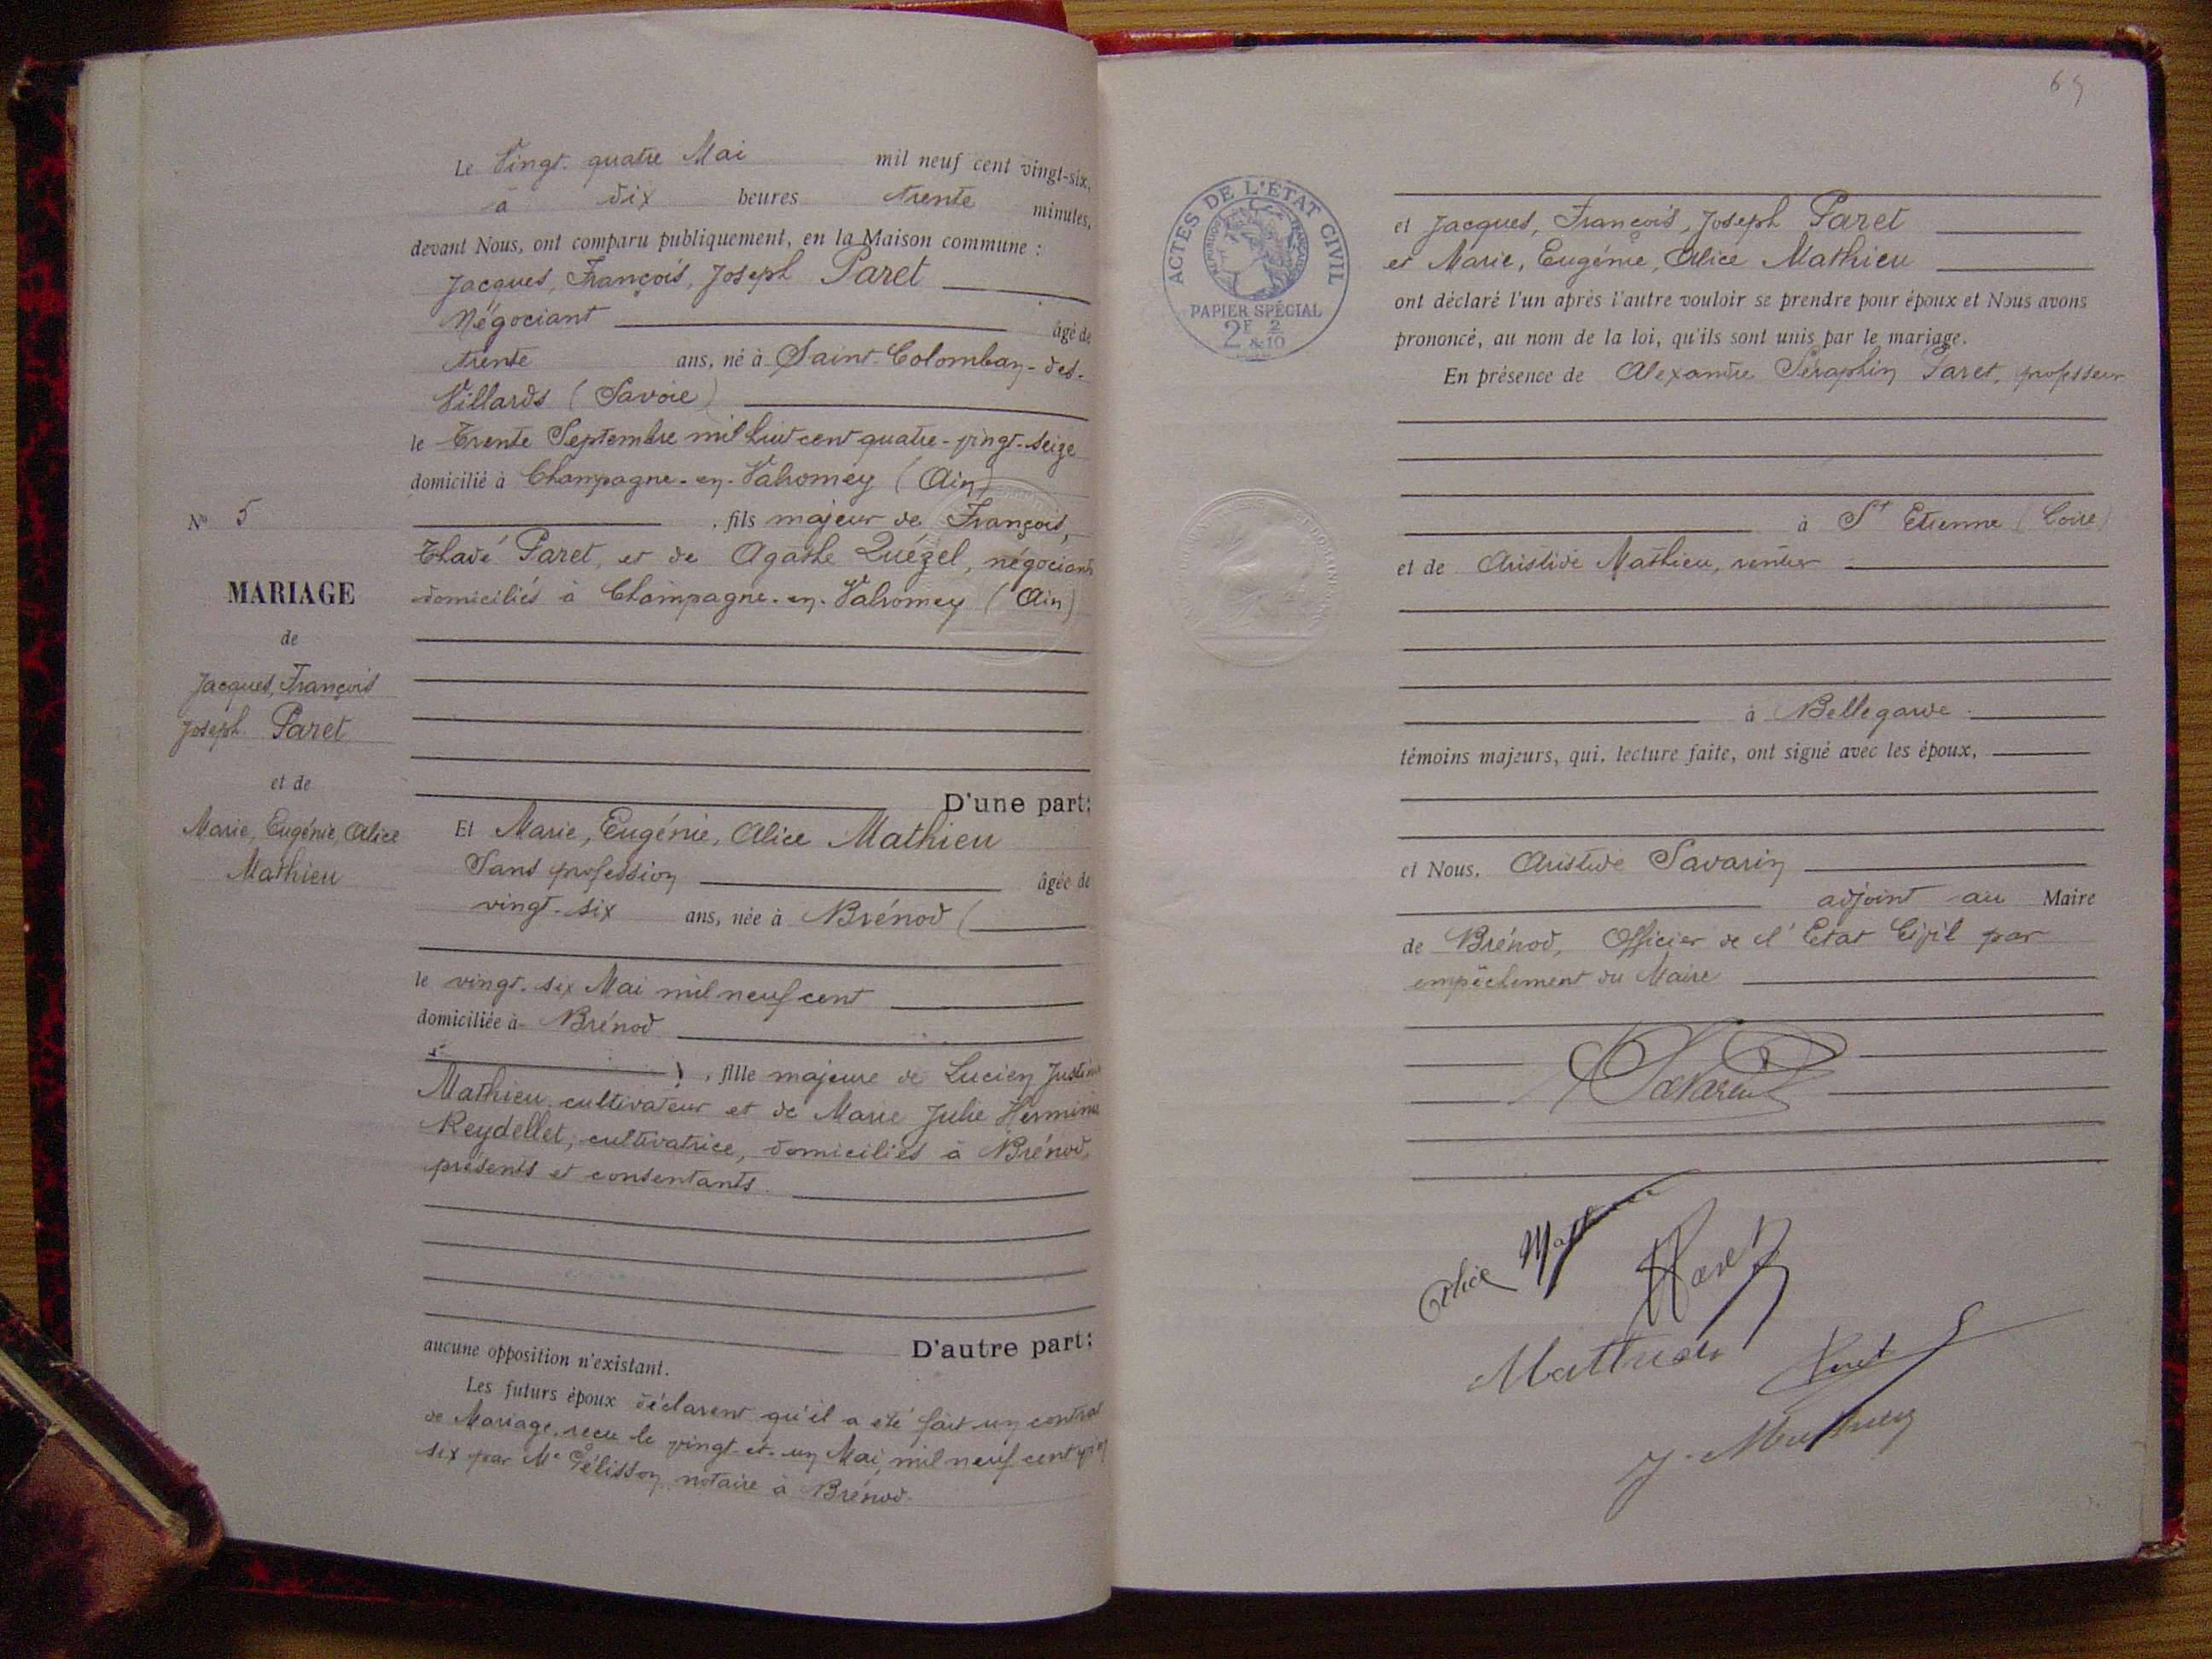 Le Vingt-quatre Mai mil neuf cent vingt-six,
à dix heures trente minutes,
devant Nous, ont comparu publiquement, en la Maison commune :
Jacques, François, Joseph Paret
Négociant âgé de
trente ans, né à Saint-Colomban-des-
Villards (Savoie)
le Trente Septembre mil huit cent quatre-vingt-seize
domicilié à Champagne-en-Valromey (Ain)
, fils majeur de François,
Thadé Paret, et de Agathe Quézel, négociants
domiciliés à Champagne-en-Valromey (Ain)
D'une part;
Et Marie, Eugénie, Alice Mathieu
Sans profession âgée de
vingt-six ans, née à Brénod (
le vingt-six Mai mil neuf cent
domiciliée à Brénod
), fille majeure de Lucien Justin
Mathieu, cultivateur et de Marie Julie Herminie
Reydellet, cultivatrice, domiciliés à Brénod,
présents et consentants.
D'autre part;
aucune opposition n'existant.
Les futurs époux déclarent qu'il a été fait un contrat
de Mariage, reçu le vingt-et-un Mai, mil neuf cent vingt
six par Me Pélisson, notaire à Brénod.
No 5
MARIAGE
de
Jacques, François
Joseph Paret
et de
Marie, Eugénie, Alice
Mathieu
69
ACTES DE L'ÉTAT CIVIL
RÉPUBLIQUE FRANÇAISE
PAPIER SPÉCIAL
2F & 2/10
et Jacques, François, Joseph Paret
et Marie, Eugénie, Alice Mathieu
ont déclaré l'un après l'autre vouloir se prendre pour époux et Nous avons
prononcé, au nom de la loi, qu'ils sont unis par le mariage.
En présence de Alexandre Séraphin Paret, professeur
à St Etienne (Loire)
et de Aristide Mathieu, rentier
à Bellegarde.
témoins majeurs, qui, lecture faite, ont signé avec les époux,
et Nous, Aristide Savarin
adjoint au Maire
de Brénod, Officier de l'Etat Civil par
empêchement du Maire
Savarin
Alice Mathieu
Paret
Mathieu
Paret
J. Mathieu